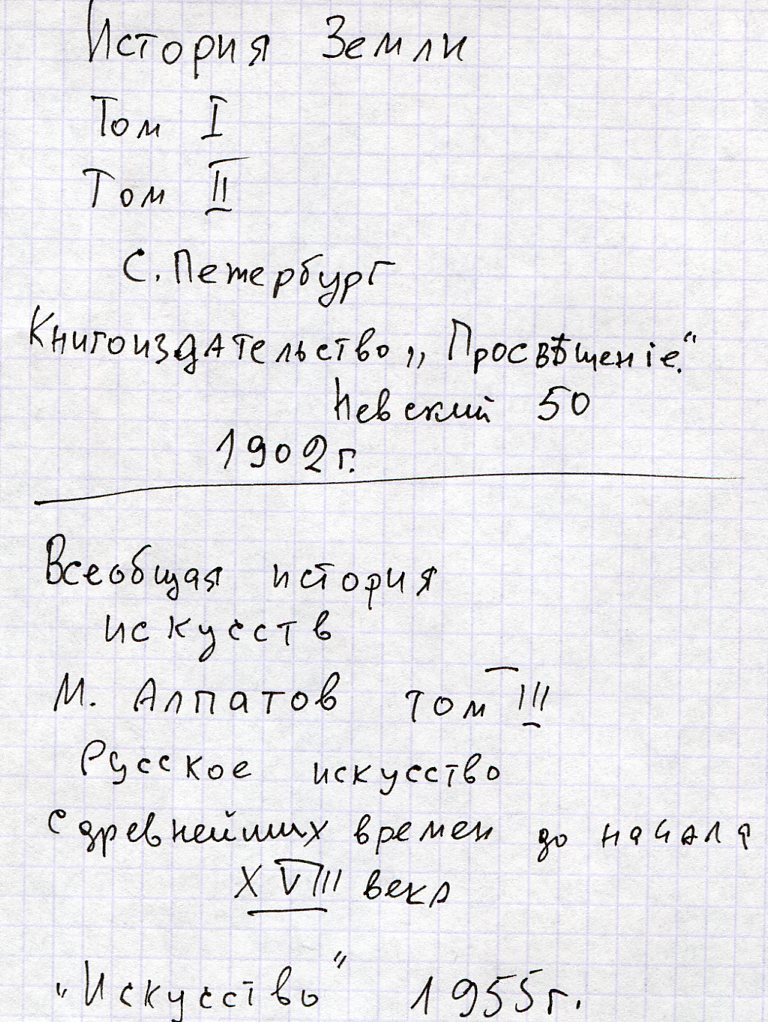 История Земли
Том I
Том II
С. Петербург
Книгоиздательство „Просвѣщенiе."
Невский 50
1902 г.
Всеобщая история
искусств
М. Алпатов том III
Русское искусство
с древнейших времен до начала
XVIII века
„Искусство" 1955 г.